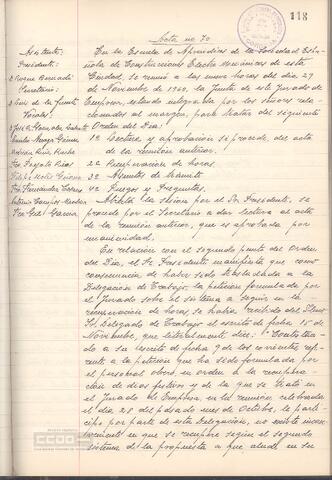 118
Acta no 70
Asistentes
Presidente:
Secretario:
D. Luis de la Fuente
Vocales:
Emilio Monge Gaimón
Fco. Fernández
Antonio Campos
García
En la Escuela de Aprendices de la Sociedad Espa-
ñola de Construcciones Electro Mecánicas de esta
Ciudad, se reunió a las once horas del día 29
de Noviembre de 1960, la Junta de este Jurado de
Empresa, estando integrada por los señores rela-
cionados al margen, para tratar del siguiente
Orden del Día:
1º Lectura y aprobación si procede, del acta
de la reunión anterior.
2º Recuperación de horas.
3º Asuntos de trámite
4º Ruegos y Preguntas.
Abierta la sesión por el Sr. Presidente, se
procede por el Secretario a dar lectura al acta
de la reunión anterior, que es aprobada por
unanimidad.
En relación con el segundo punto del Orden
del Día, el Sr. Presidente manifiesta que como
consecuencia de haber sido trasladada a la
Delegación de Trabajo, la petición formulada por
el Jurado sobre el sistema a seguir en la
recuperación de horas, se había recibido del Ilmo
Sr. Delegado de Trabajo el escrito de fecha 15 de
Noviembre, que literalmente dice: "Contestan-
do a su escrito de fecha 9 de los corrientes, refe-
rente a la petición que ha sido formulada por
el personal obrero, en orden a la recupera-
ción de días festivos y de la que se trató en
el Jurado de Empresa en su reunión celebrada
el día 28 del pasado mes de Octubre, le parti-
cipo por parte de esta Delegación, no existe incon-
veniente en que se recupere según el segundo
sistema de la propuesta a que alude en su
ccoo